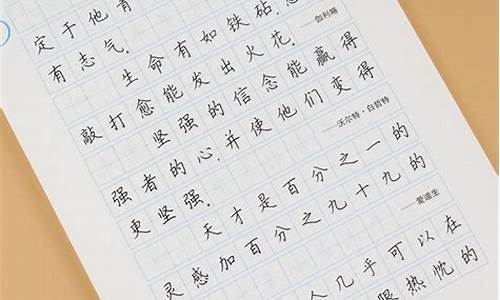 定于他有
有志气。
生命有如铁砧,愈
敲打愈能发出火花。
——伽利略
坚强的信念能赢得
强者的心,并使他们变得
更坚强。
——沃尔特·白哲特
天才是百分之一的
灵感加百分之九十九的
——爱迪生
人几乎可以在
限热忱的